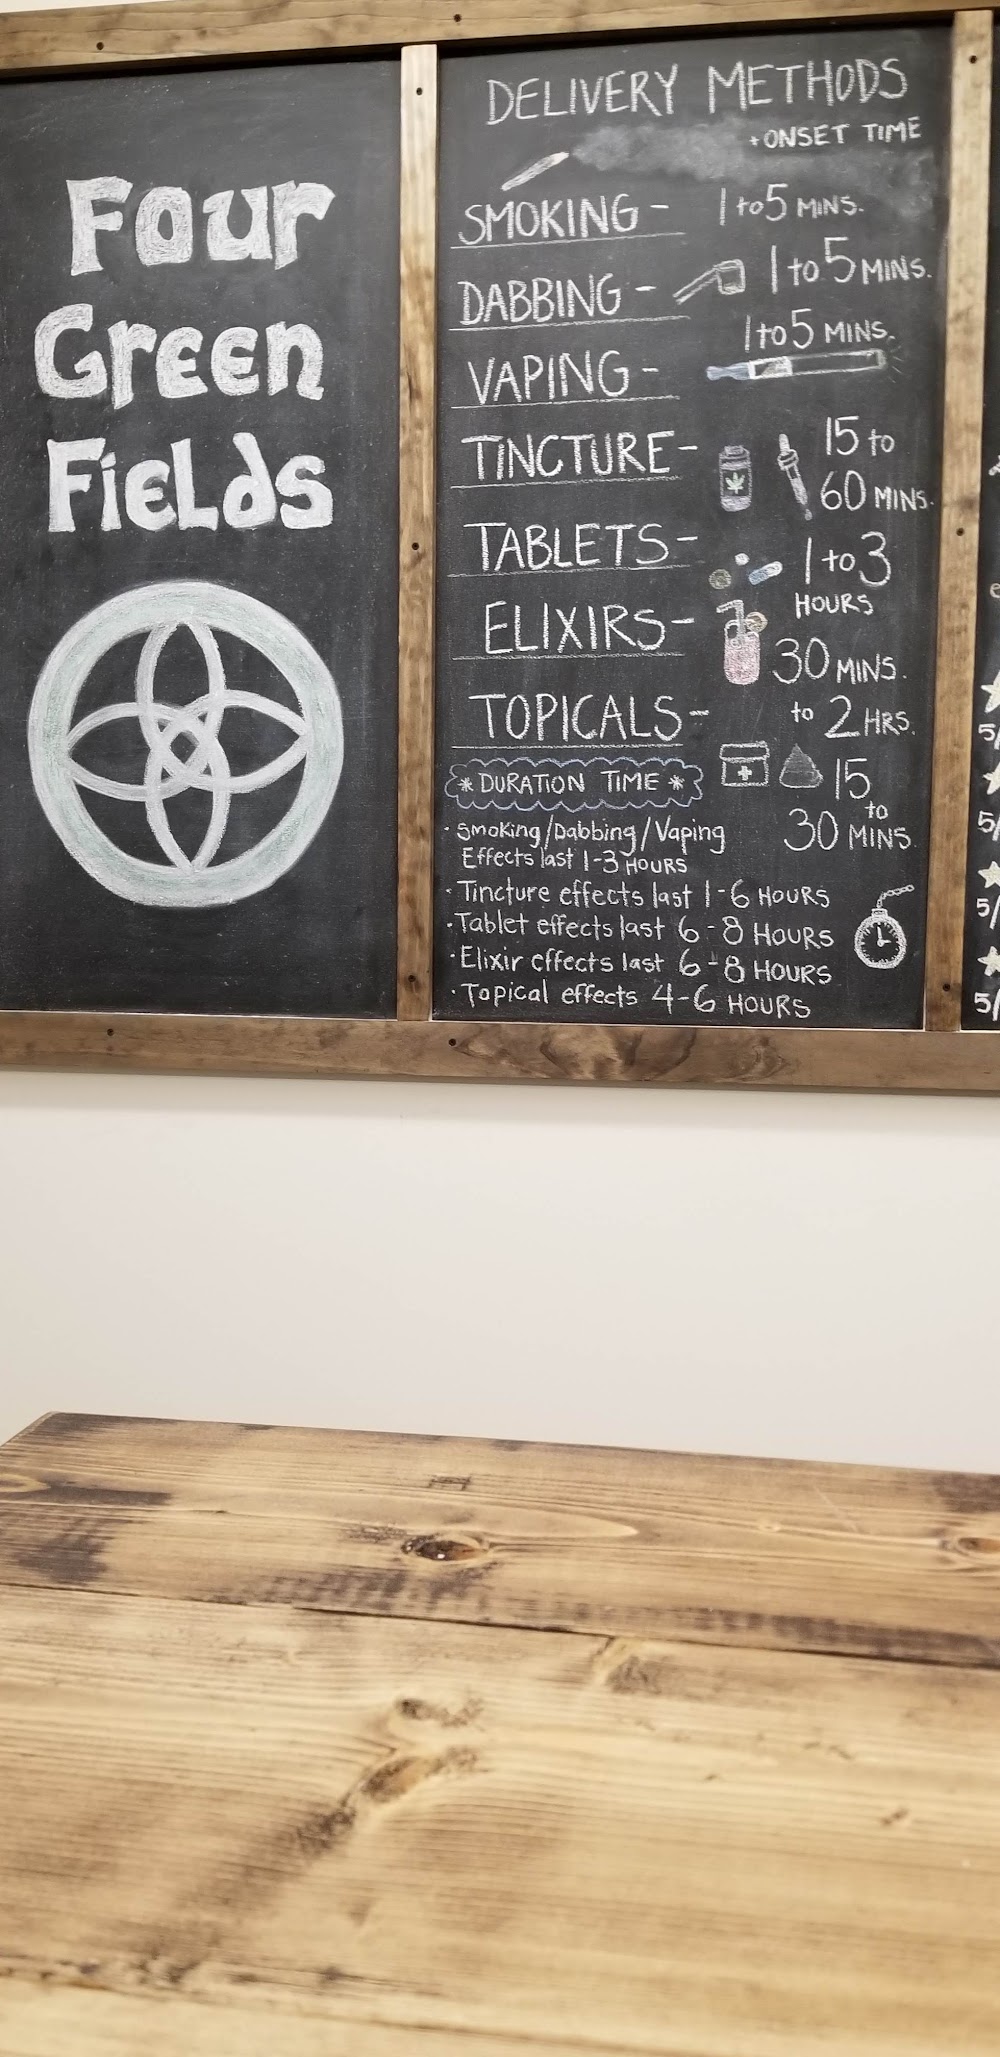 Four
Green
Fields
DELIVERY METHODS
+ ONSET TIME
SMOKING - 1 to 5 MINS.
DABBING - 1 to 5 MINS.
VAPING - 1 to 5 MINS.
TINCTURE - 15 to
60 MINS.
TABLETS - 1 to 3
HOURS
ELIXIRS - 30 MINS.
to 2 HRS.
TOPICALS - 15
to
30 MINS.
* DURATION TIME *
· Smoking/Dabbing/Vaping
Effects last 1-3 HOURS
· Tincture effects last 1-6 HOURS
· Tablet effects last 6-8 HOURS
· Elixir effects last 6-8 HOURS
· Topical effects 4-6 HOURS
5/
5/
5/
5/